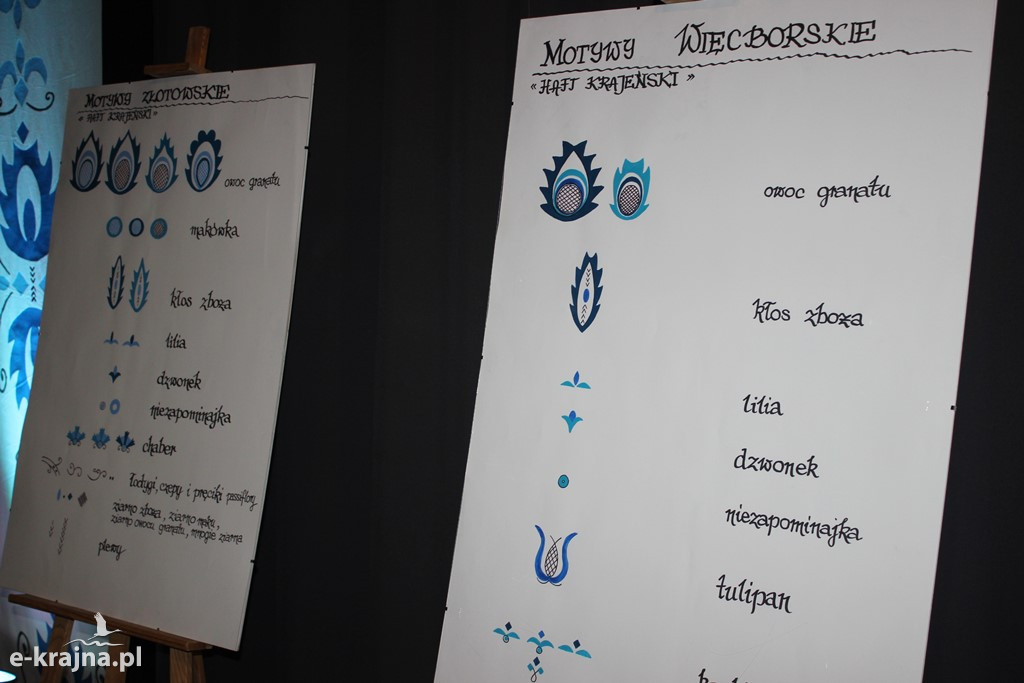 MOTYWY ZŁOTOWSKIE
"HAFT KRAJEŃSKI"
owoc granatu
makówka
kłos zboża
lilia
dzwonek
niezapominajka
chaber
łodygi, czepy i pręciki passiflory
ziarno zboża, ziarno maku,
ziarno owocu granatu, mnogie ziarna
plewy
MOTYWY WIĘCBORSKIE
"HAFT KRAJEŃSKI"
owoc granatu
kłos zboża
lilia
dzwonek
niezapominajka
tulipan
e-krajna.pl